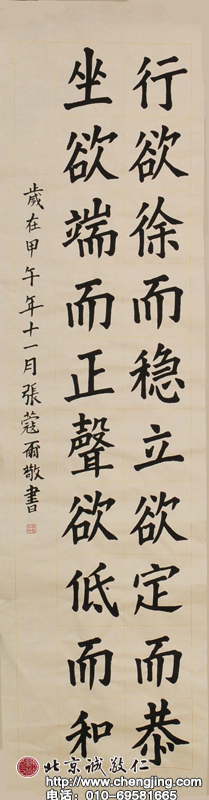 行欲徐而稳立欲定而恭
坐欲端而正聲欲低而和
歲在甲午年十一月張蔻爾敬書
北京诚敬仁
http://www.chengjing.com
电话：010-69581665